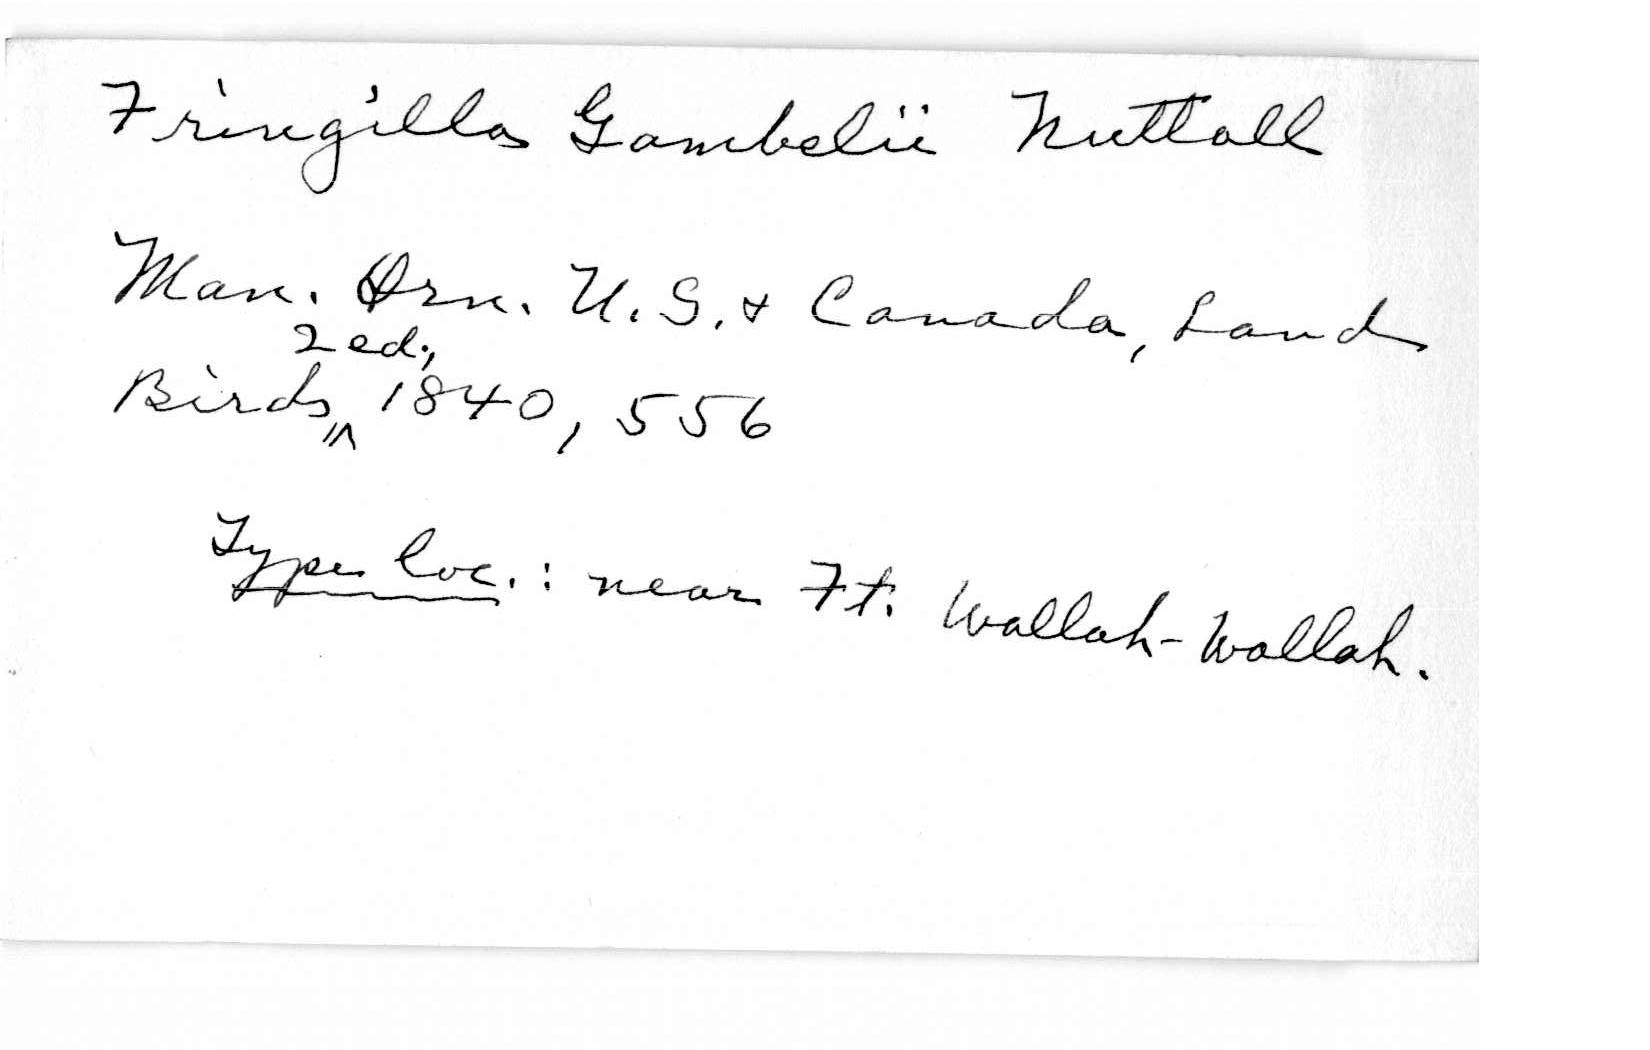 Fringilla Gambelii Nuttall
Man. Orn. U.S. & Canada, Land
Birds, 2 ed., 1840, 556
Type loc.: near Ft. Wallah-Wallah.